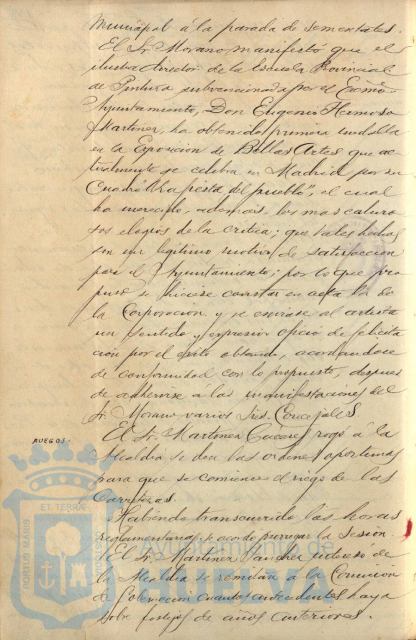 Municipal á la parada de sementales.
El Sr. Morano, manifestó que el
ilustre director de la Escuela Provincial
de Pintura subvencionada por el Excmo
Ayuntamiento, Don Eugenio Hermoso
Martinez, ha obtenido primera medalla
en la Exposicion de Bellas Artes que ac-
tualmente se celebra en Madrid por su
Cuadro "La fiesta del pueblo", el cual
ha merecido, además, los mas caluro
sos elogios de la critica; que tales hechos
son un legitimo motivo de satisfaccion
para el Ayuntamiento; por lo que pro
puso se hiciese constar en acta la de
la Corporacion y se enviase al artista
un sentido y expresivo oficio de felicita
cion por el éxito obtenido, acordandose
de conformidad con lo propuesto, despues
de adherirse a las manifestaciones del
Sr. Morano varios Sres. Concejales.
RUEGOS.
El Sr. Martinez Cáceres rogó á la
Alcaldia se den las ordenes oportunas
para que se comience el riego de las
Carreteras.
Habiendo transcurrido las horas
reglamentarias se acordó prorrogar la Sesion.
El Sr. Martinez Sanchez interesó de
la Alcaldia se remitan á la Comision
de Gobernacion cuantos antecedentes haya
sobre festejos de años anteriores.
ET TERRÆ
CUSTODIA
PORTUS MARIS
Ayuntamiento de